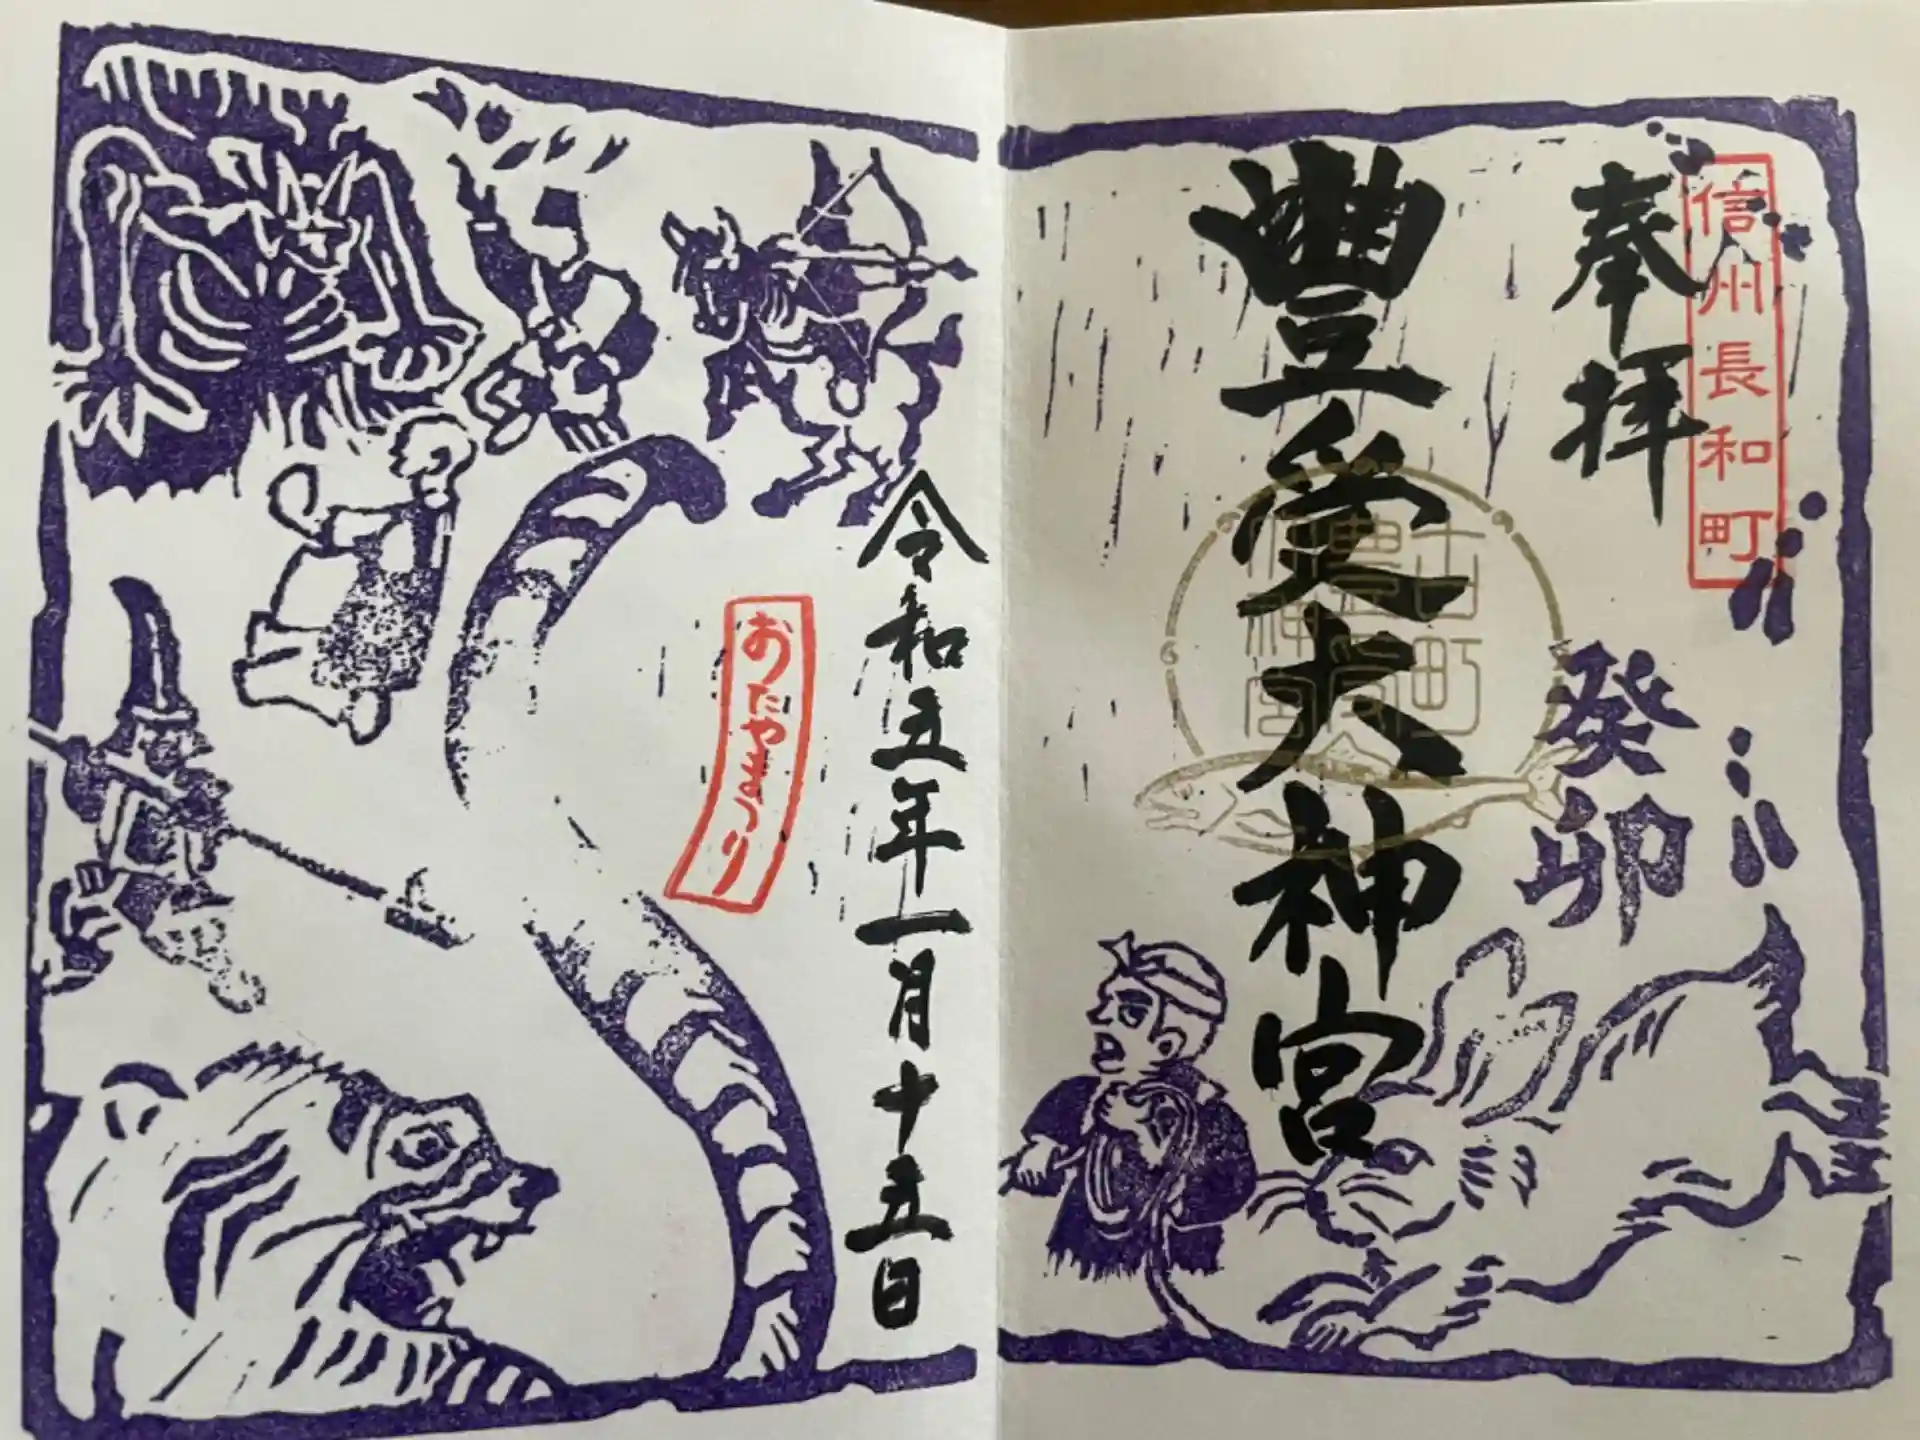 信州長和町
奉拝
癸卯
豊受大神宮
令和五年一月十五日
おたやまつり